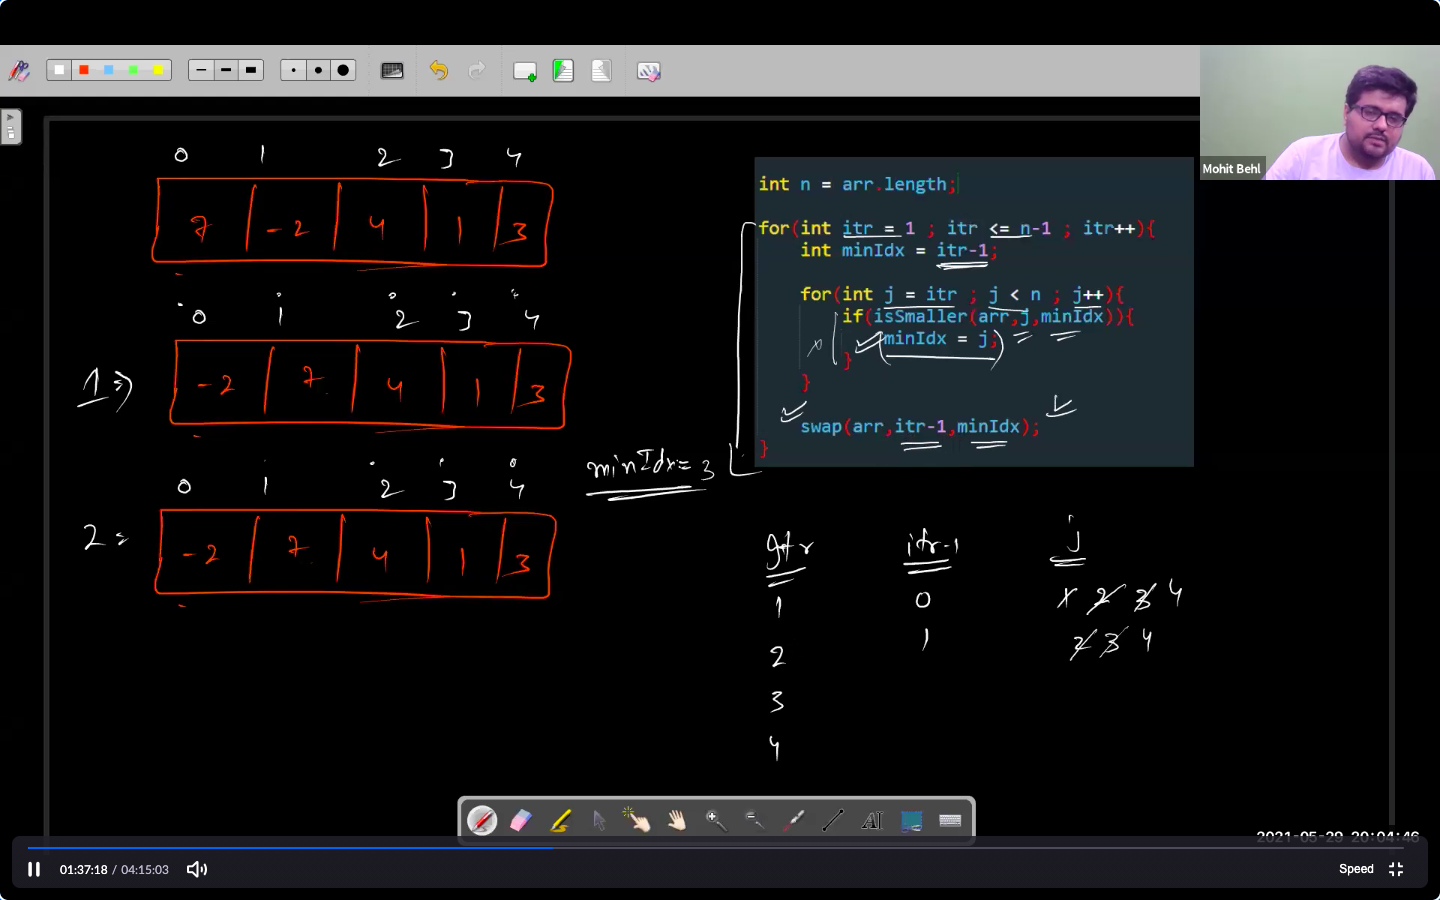 Mohit Behl
0 1 2 3 4
7 -2 4 1 3
0 1 2 3 4
1 => -2 7 4 1 3
0 1 2 3 4
2 = -2 7 4 1 3
minIdx = 3
int n = arr.length;
for(int itr = 1 ; itr <= n-1 ; itr++){
int minIdx = itr-1;
for(int j = itr ; j < n ; j++){
if(isSmaller(arr,j,minIdx)){
minIdx = j;
}
}
swap(arr,itr-1,minIdx);
}
itr itr-1 j
1 0 1 2 3 4
2 1 2 3 4
3
4
AI
2021-05-29 20:04:46
01:37:18 / 04:15:03
Speed